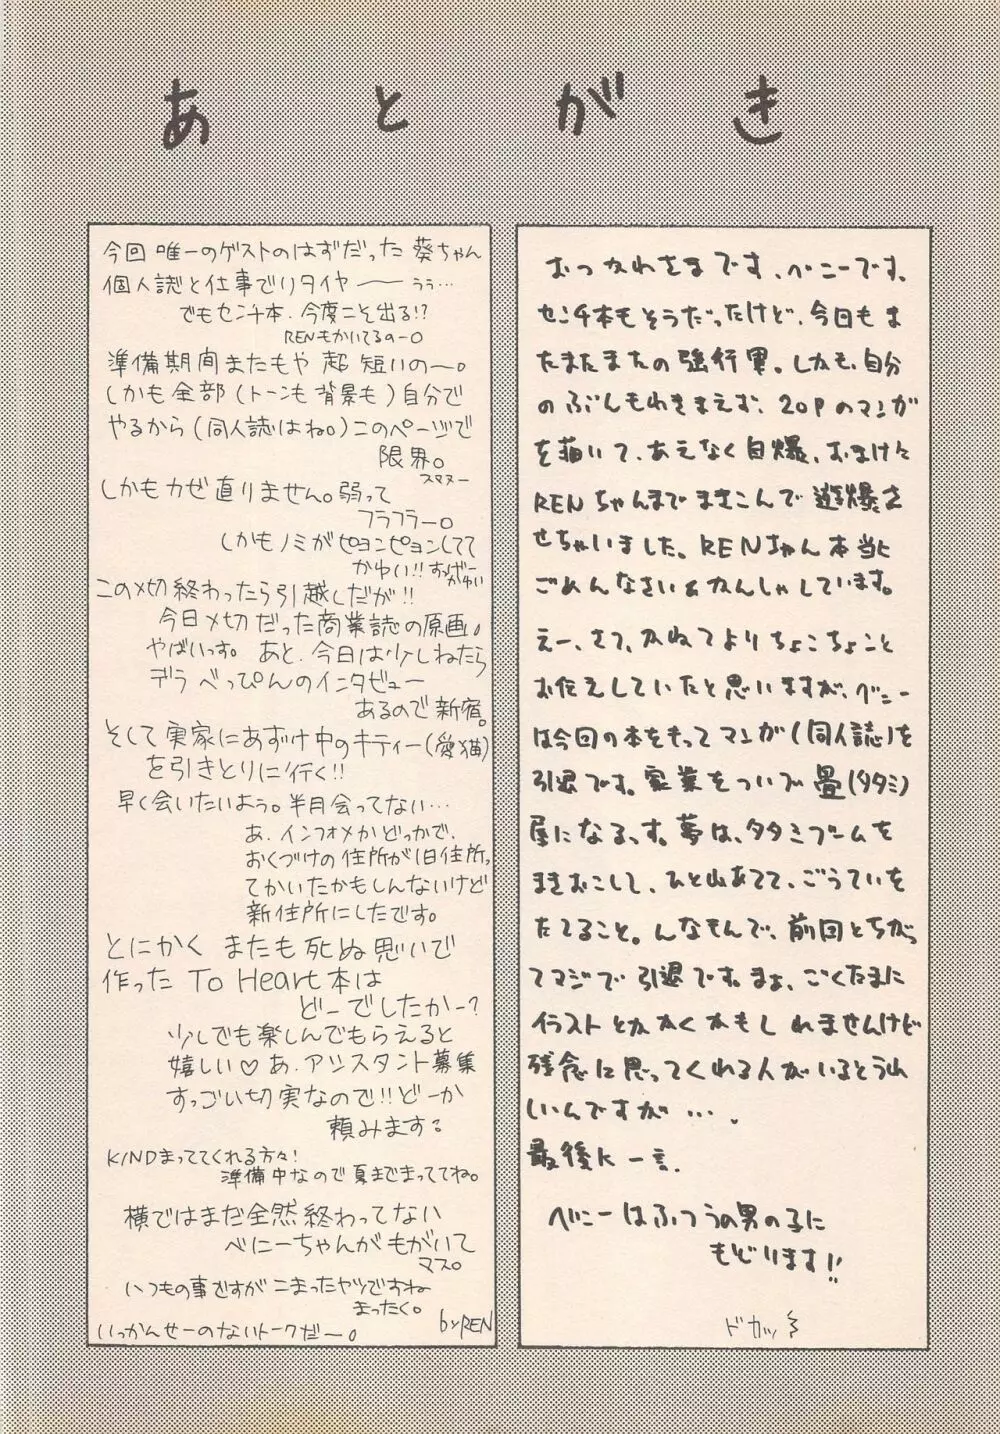 あとがき
今回 唯一のゲストのはずだった 葵ちゃん
個人誌と仕事でリタイヤ── うぅ…
でもセンチ本、今度こそ出る!?
RENもかいてるのーO
準備期間またもや 超 短いの〜。
しかも全部(トーンも背景も)自分で
やるから(同人誌はね。)このページで
限界。
スマヌー
しかもカゼ直りません。弱って
フラフラー。
しかもノミがピョンピョンしてて
かゆい!!すんげーかゆい
この〆切終わったら引越しだが!!
今日〆切だった商業誌の原画。
やばいっす。あと、今日は少しねたら
デラべっぴんのインタビュー
あるので新宿。
そして実家にあずけ中のキティー(愛猫)
を引きとりに行く!!
早く会いたいよう。半月会ってない…
あ、インフォメかどっかで、
おくづけの住所が旧住所っ
てかいたかもしんないけど
新住所にしたです。
とにかく またも死ぬ思いで
作った To Heart本は
どーでしたかー?
少しでも楽しんでもらえると
嬉しい♡ あ、アシスタント募集
すっごい切実なので!!どーか
頼みます。
KINDまっててくれる方々!
準備中なので夏までまっててね。
横ではまだ全然終わってない
べにーちゃんがもがいて
マス。
いつもの事ですがこまったヤツですね
まったく。
いっかんせーのないトークだ〜。
by REN
おつかれさまです、ベニーです。
センチ本もそうだったけど、今回もま
たまたまたの強行軍。しかも、自分
のぶんもわきまえず、20Pのマンガ
を描いて、あえなく自爆、おまけに
RENちゃんまでまきこんで誘爆さ
せちゃいました。RENちゃん本当に
ごめんなさい&かんしゃしています。
えー、さて、かねてよりちょこちょこと
お伝えしていたと思いますが、ベニー
は今回の本をもってマンガ(同人誌)を
引退です。家業をついで畳(タタミ)
屋になるっす。夢は、タタミブームを
まきおこして、ひと山あてて、ごうていを
たてること。んなもんで、前回とちがっ
てマジで引退です。まぁ、ごくたまに
イラストとかかくかもしれませんけど
残念に思ってくれる人がいるとうれ
しいんですが…。
最後に一言。
べにーはふつうの男の子に
もどります!!
ドカッ